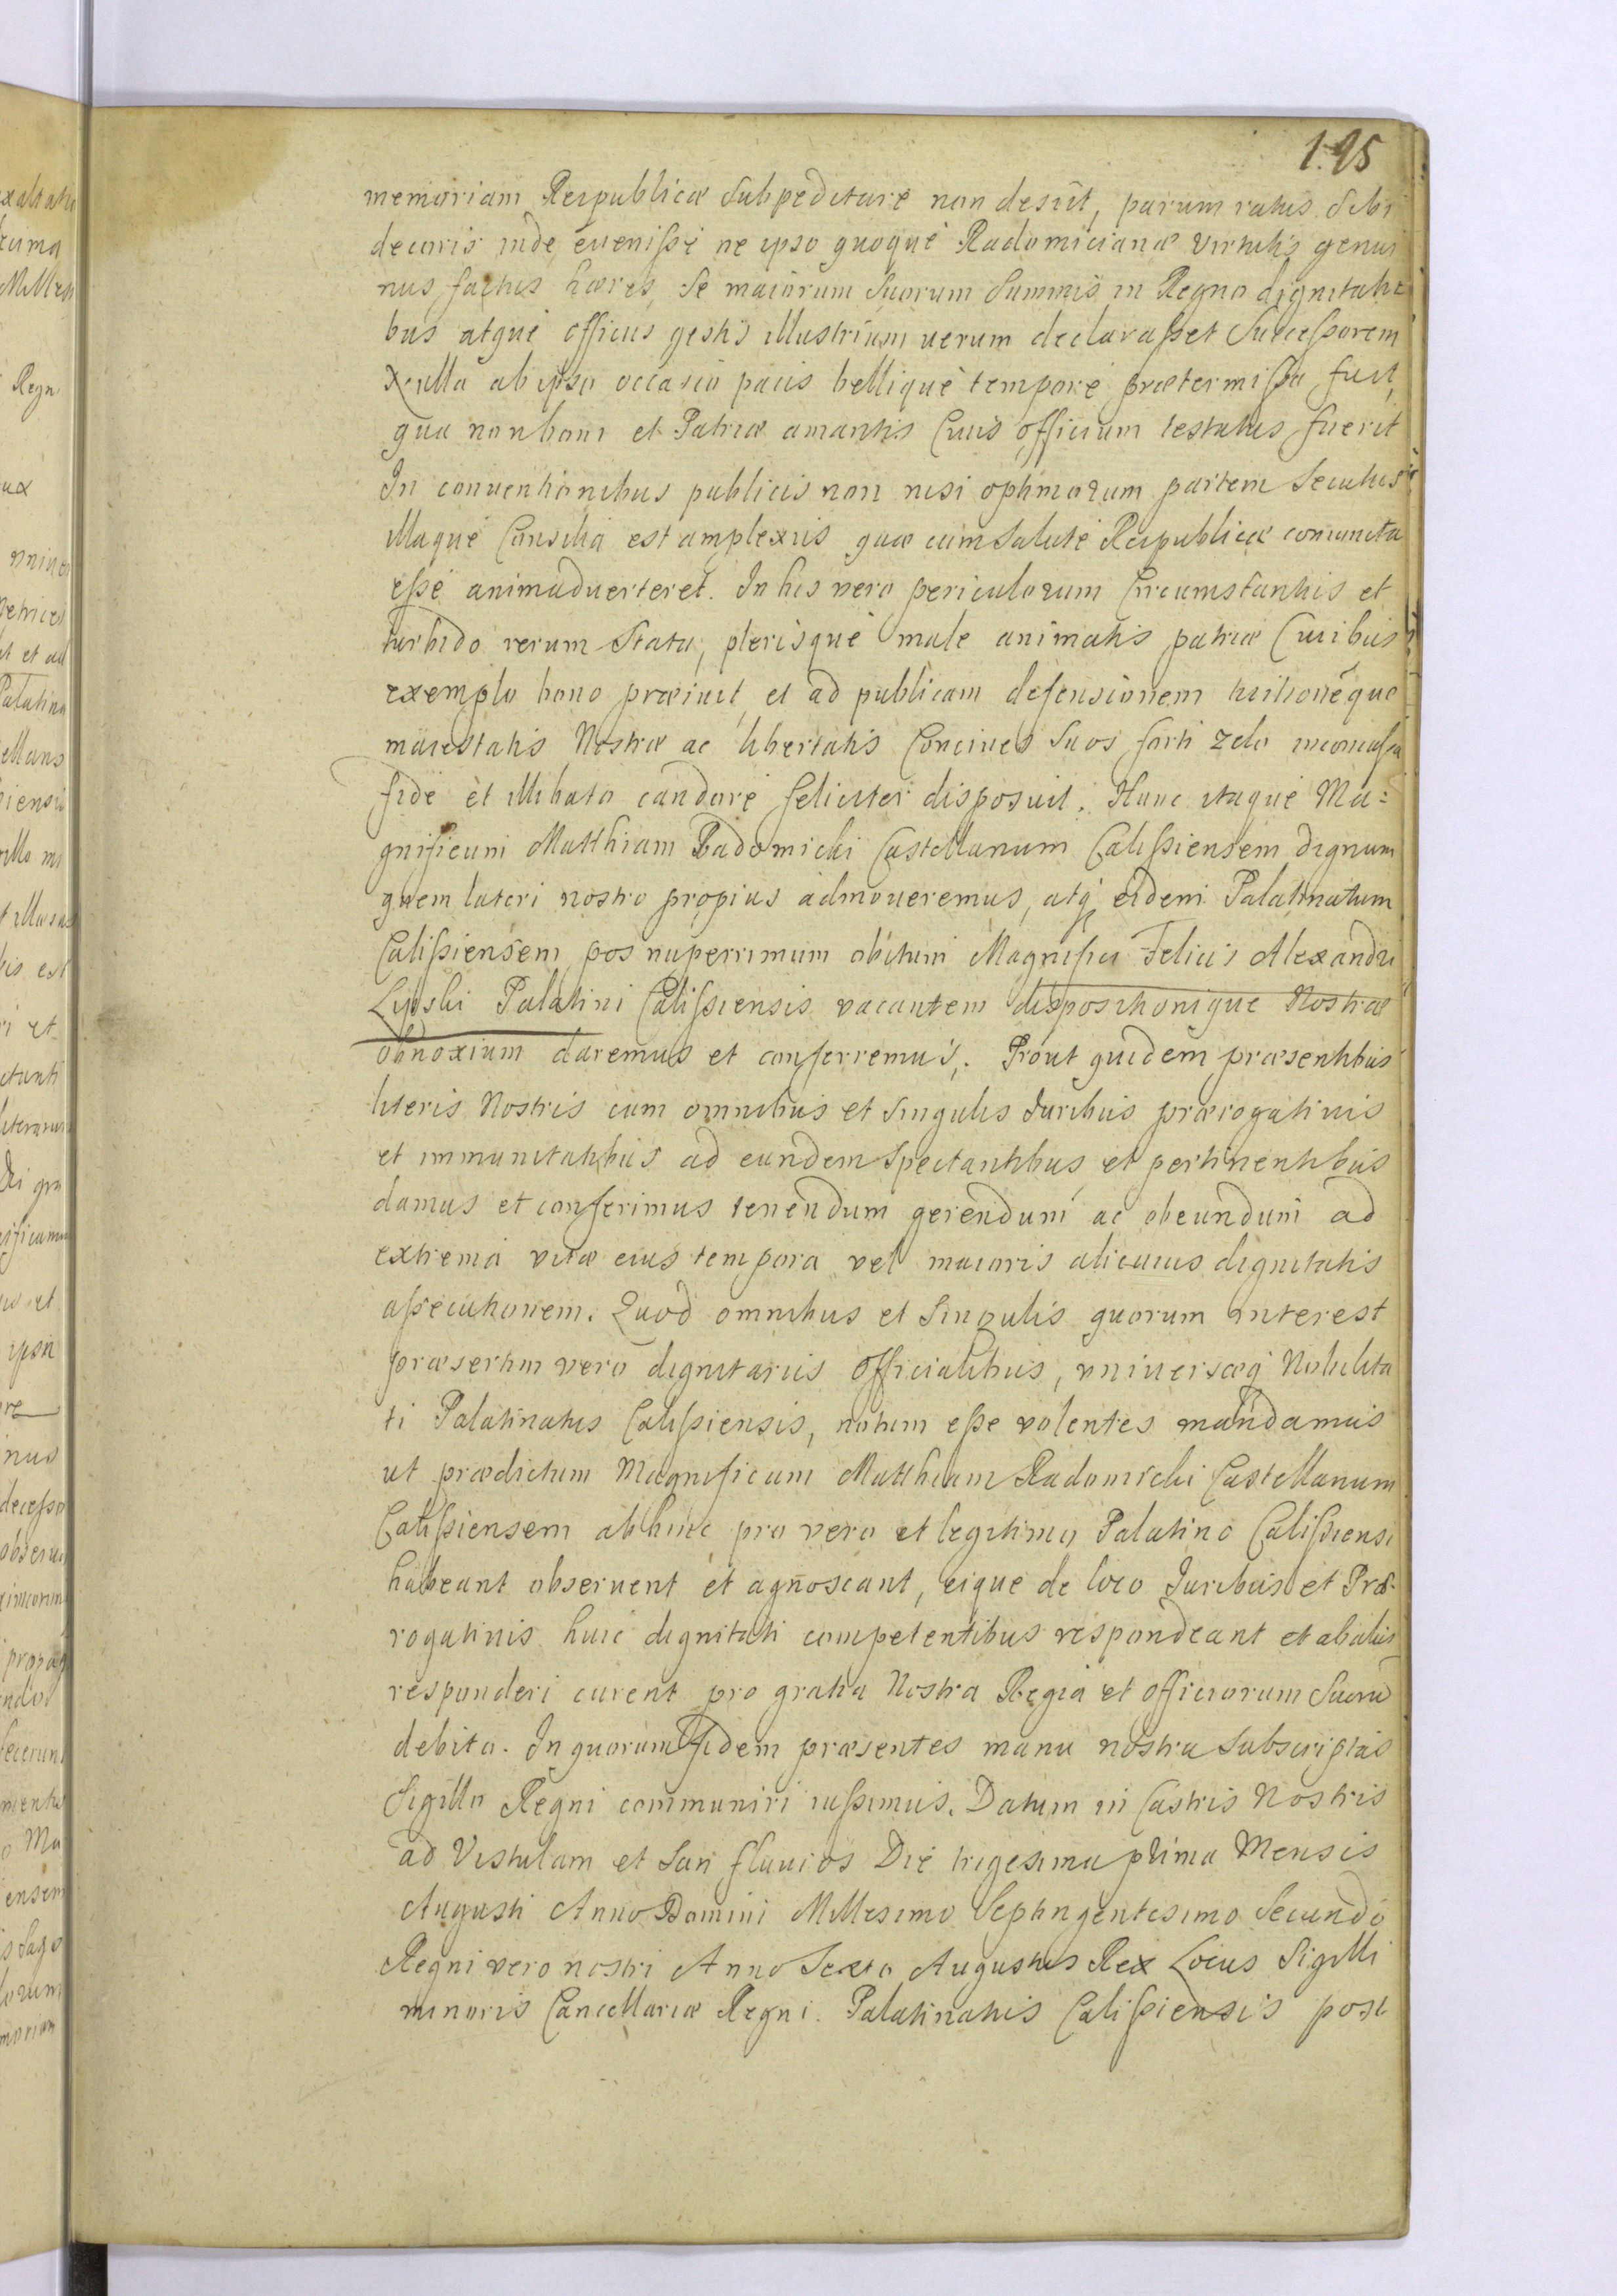 195
memoriam Reipublicæ Subpeditare non desiit, parum ratus Sibi
decoris inde evenisse ne ipso quoque Radomicianæ virtutis genui
nus factus hæres, Se maiorum Suorum Summis in Regno dignitati
bus atque officiis gestis illustrium verum declarasset Successorem
nulla ab ipso occasio pacis bellique tempore prætermissa fuit,
qua non boni et Patriæ amantis Civis officium testatus fuerit
In conventionibus publicis non nisi optimorum partem Secutus
illaque Consilia est amplexus quæ cum Salute Reipublicæ coniuncta
esse animadverteret. In his vero periculorum Circumstantiis et
turbido rerum Statu, plerisque male animatis patriæ Civibus
exemplo bono præivit, et ad publicam defensionem tuitionéque
maiestatis Nostræ ac libertatis Concives Suos forti zelo inconcussa
fide et illibato candore feliciter disposuit. Hunc itaque Ma=
gnificum Matthiam Radomicki Castellanum Calissiensem dignum
quem lateri nostro propius admoveremus, atq eidem Palatinatum
Calissiensem pos nuperrimum obitum Magnifici Felicis Alexandri
Lipski Palatini Calissiensis vacantem dispositionique Nostræ
obnoxium daremus et conferremus. Prout quidem præsentibus
literis Nostris cum omnibus et Singulis Juribus prærogativis
et immunitatibus ad eundem Spectantibus et pertinentibus
damus et conferimus tenendum gerendum ac obeundum ad
extrema vitæ eius tempora vel maioris alicuius dignitatis
assecutionem. Quod omnibus et Singulis quorum interest
præsertim vero dignitariis Officialibus, universæq Nobilita
ti Palatinatus Calissiensis, notum esse volentes mandamus
ut prædictum Magnificum Matthiam Radomicki Castellanum
Calissiensem abhinc pro vero et legitimo Palatino Calissiensi
habeant observent et agnoscant, eique de loco Juribus et Præ-
rogativis huic dignitati competentibus respondeant et ab aliis
responderi curent pro gratia Nostra Regia et officiorum Suorū
debito. In quorum fidem præsentes manu nostra Subscriptas
Sigillo Regni communiri iussimus. Datum in Castris Nostris
ad Vistulam et San fluvios Die trigesima prima Mensis
Augusti Anno Domini Millesimo Septingentesimo Secundo
Regni vero nostri Anno Sexto Augustus Rex Locus Sigilli
minoris Cancellariæ Regni. Palatinatus Calissiensis post